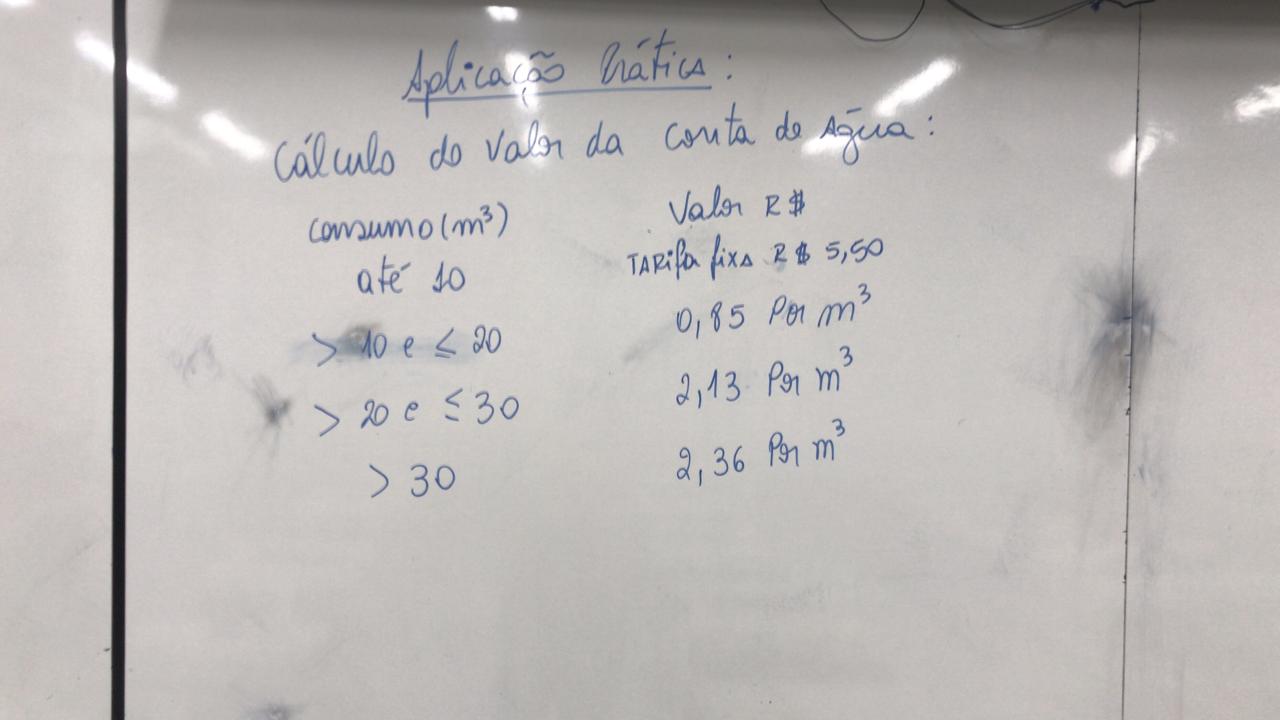 Aplicação Prática:
Cálculo do Valor da Conta de Água:
Consumo (m³) Valor R$
até 10 TARifa fixA R$ 5,50
> 10 e ≤ 20 0,85 Por m³
> 20 e ≤ 30 2,13 Por m³
> 30 2,36 Por m³